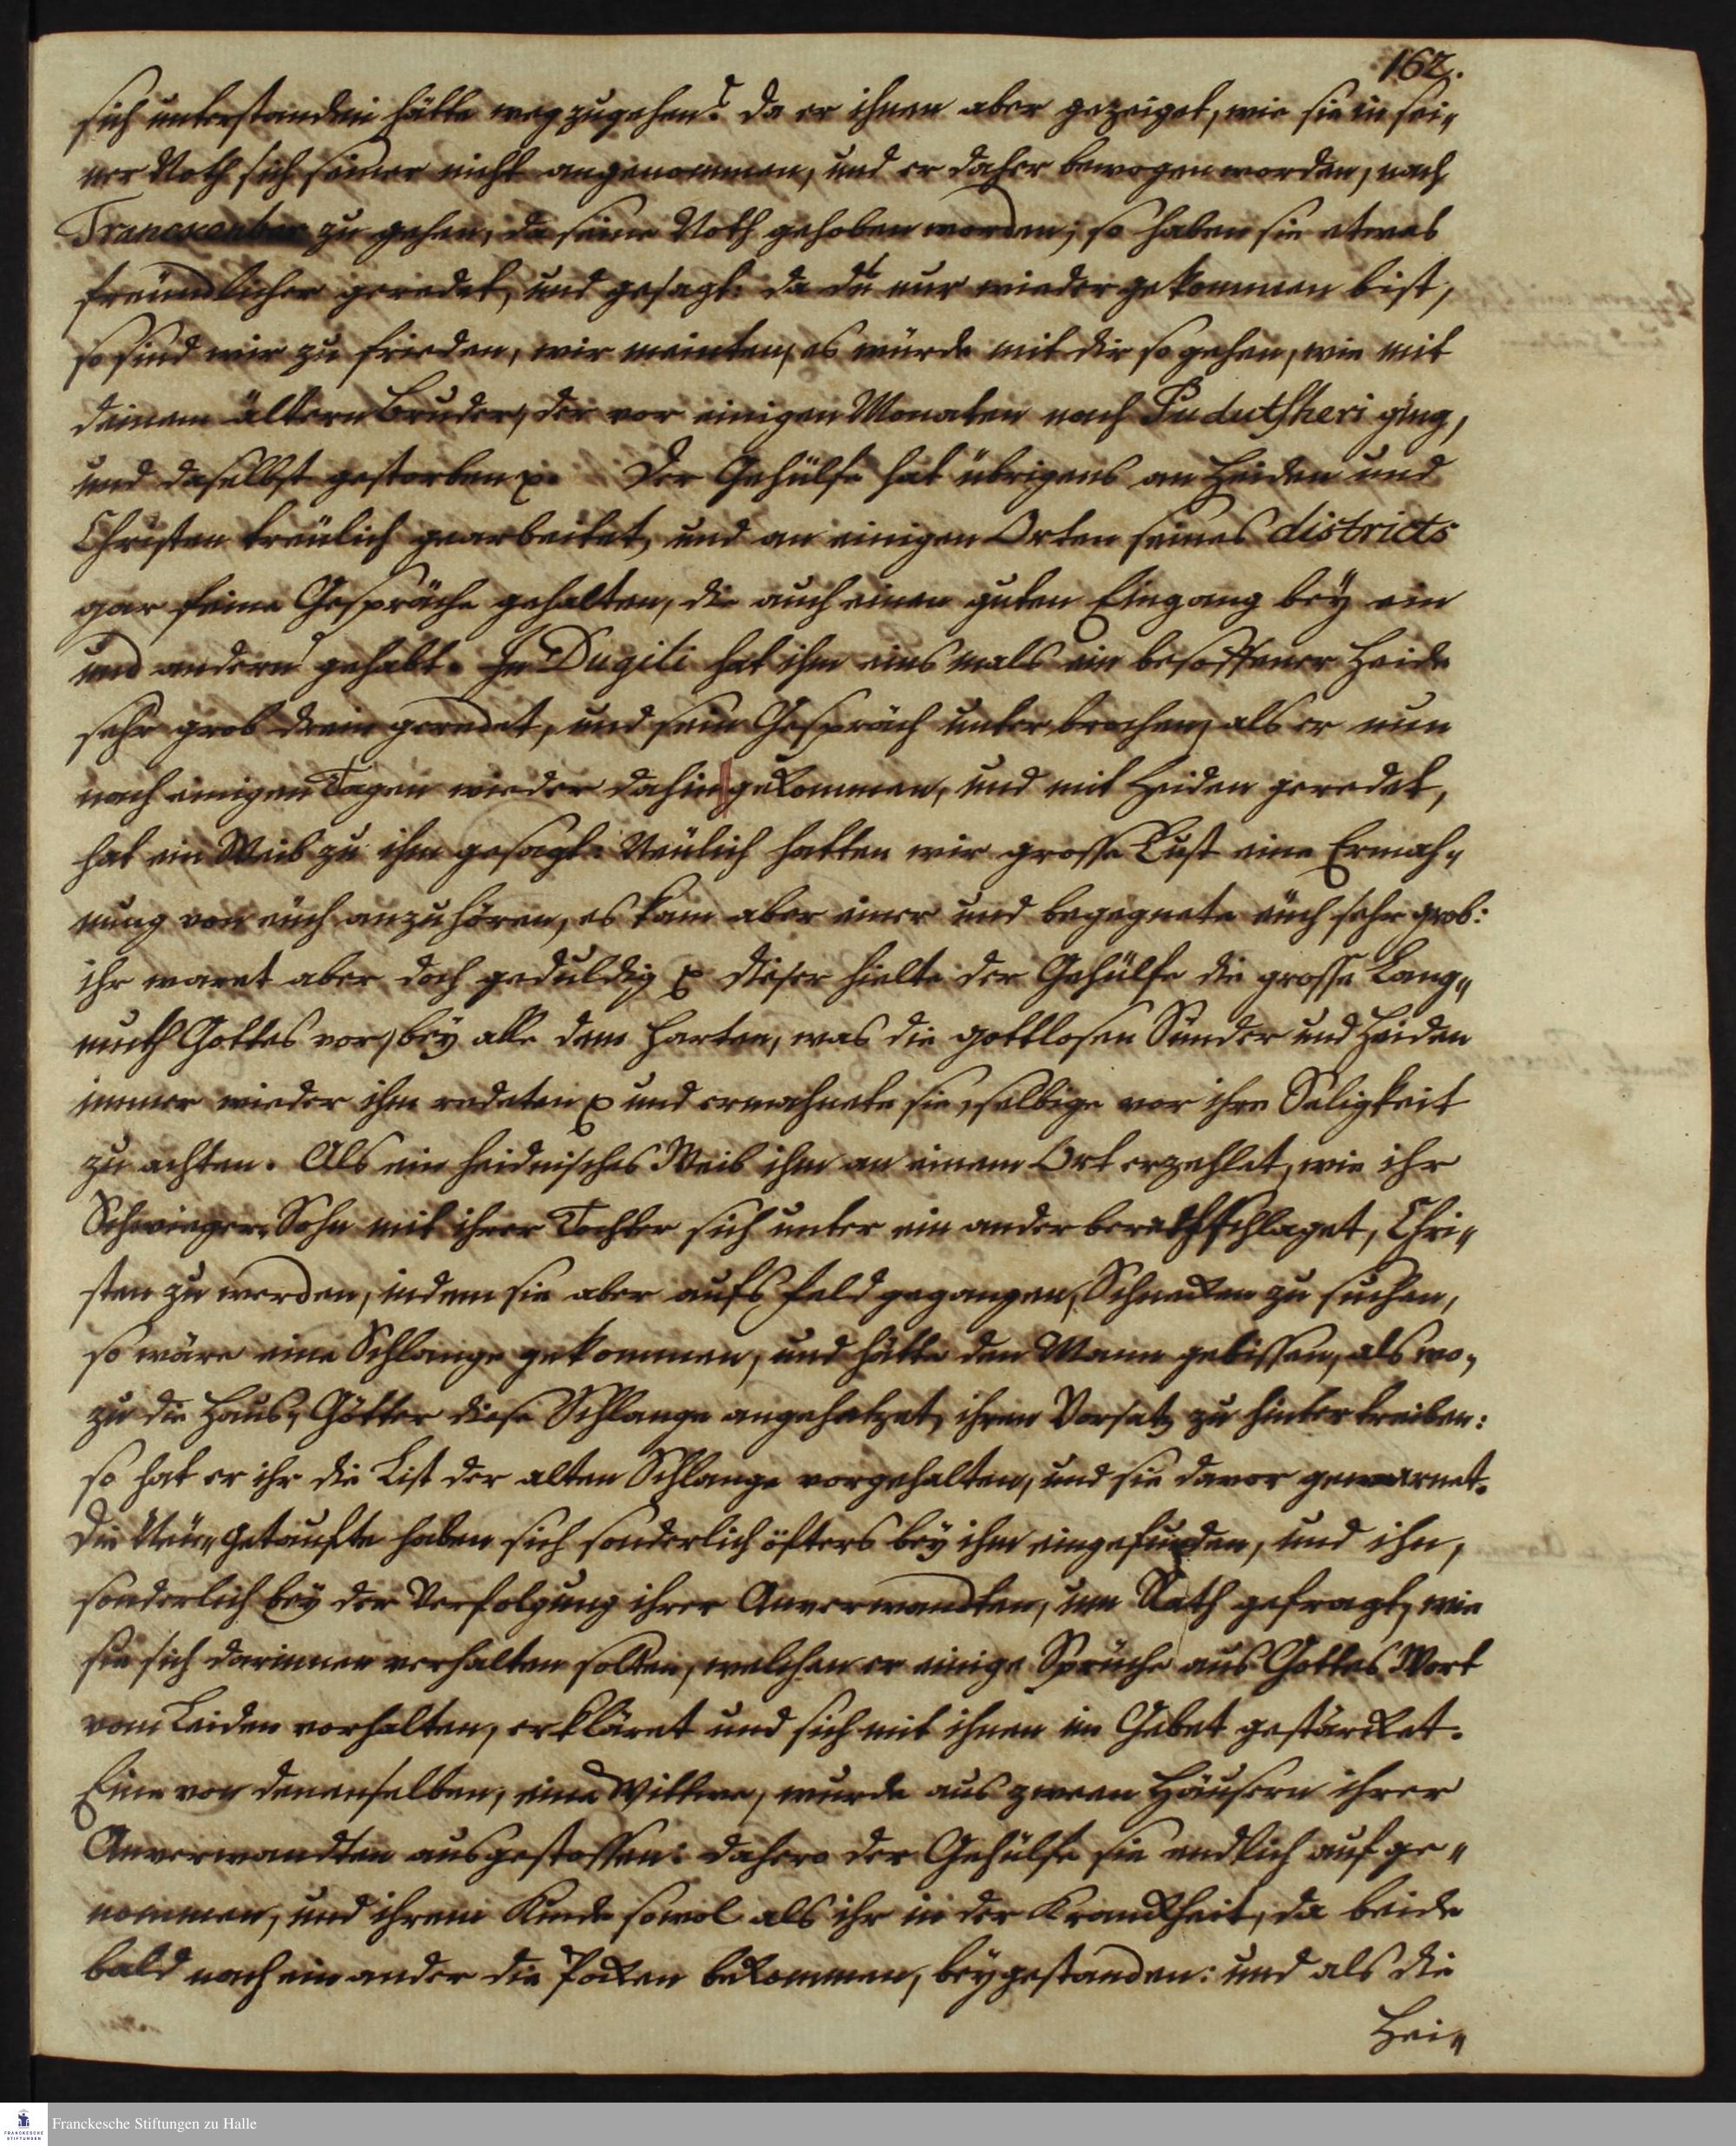 162.
sich unterstanden hätte wegzugehen? da er ihnen aber gezeiget, wie sie in sei„
ner Noth sich seiner nicht angenommen, und er daher bewogen worden, nach
Tranckenbar zu gehen, da seine Noth gehoben worden; so haben sie etwas
freündlicher geredet, und gesagt: da du nur wieder gekommen bist,
so sind wir zu frieden, wir meinten, es würde mit dir so gehen, wie mit
deinem ältern Bruder, der vor einigen Monaten nach Pudutsheri ging,
und daselbst gestorben p. Der Gehülfe hat übrigens an Heiden und
Christen treülich gearbeitet, und an einigen Orten seines districts
gar feine Gespräche gehalten, die auch einen guten Eingang bey ein
und andern gehabt. In Dugili hat ihm eins mals ein besoffener Heide
sehr grob drein geredet, und sein Gespräch unter brochen, als er nun
nach einigen Tagen wieder dahin gekommen, und mit Heiden geredet,
hat ein Weib zu ihm gesagt: Neülich hatten wir grosse Lust eine Ermah„
nung von eüch anzuhören, es kam aber einer und begegnete eüch sehr grob:
ihr waret aber doch geduldig p dieser hielte der Gehülfe die grosse Lang„
muth Gottes vor, bey alle dem Harten, was die gottlosen Sünder und Heiden
immer wieder ihm redeten p und ermahnete sie, selbige vor ihre Seligkeit
zu achten. Als ein heidnisches Weib ihm an einem Ort erzehlet, wie ihr
Schwieger„Sohn mit ihrer Tochter sich unter ein ander berathschlaget, Chri„
sten zu werden, indem sie aber aufs Feld gegangen, Schnecken zu suchen,
so wäre eine Schlange gekommen, und hätte den Mann gebissen, als wo„
zu die Haus„Götter diese Schlange angehetzet, ihren Vorsatz zu hinter treiben:
so hat er ihr die List der alten Schlange vorgehalten, und sie davor gewarnet.
Die Neü„Getaufte haben sich sonderlich öfters bey ihm eingefunden, und ihn,
sonderlich bey der Verfolgung ihrer Anverwandten, um Rath gefragt, wie
sie sich darinnen verhalten solten, welchen er einige Sprüche aus Gottes Wort
vom Leiden vorhalten, erkläret und sich mit ihnen im Gebet gestärcket.
Eine von denenselben, eine Wittwe, wurde aus zween Häusern ihrer
Anverwandten ausgestossen: dahero der Gehülfe sie endlich auf ge„
nommen, und ihrem Kinde sowol als ihr in der Kranckheit, da beide
bald nach ein ander die Pocken bekommen, beygestanden: und als die
Hei„
FRANCKESCHE STIFTUNGEN
Franckesche Stiftungen zu Halle